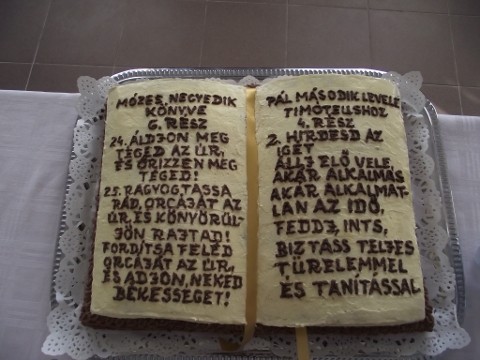 MÓZES NEGYEDIK
KÖNYVE
6. RÉSZ
24. ÁLDJON MEG
TÉGED AZ ÚR,
ÉS ŐRIZZEN MEG
TÉGED!
25. RAGYOGTASSA
RÁD, ORCÁJÁT AZ
ÚR, ÉS KÖNYÖRÜL-
JÖN RAJTAD!
FORDÍTSA FELÉD
ORCÁJÁT AZ ÚR,
ÉS ADJON, NEKED
BÉKESSÉGET!
PÁL MÁSODIK LEVELE
TIMÓTEUSHOZ
4. RÉSZ
2. HIRDESD AZ
IGÉT
ÁLLJ ELŐ VELE,
AKÁR ALKALMAS
AKÁR ALKALMAT-
LAN AZ IDŐ,
FEDDJ, INTS,
BIZTASS TELJES
TÜRELEMMEL
ÉS TANÍTÁSSAL